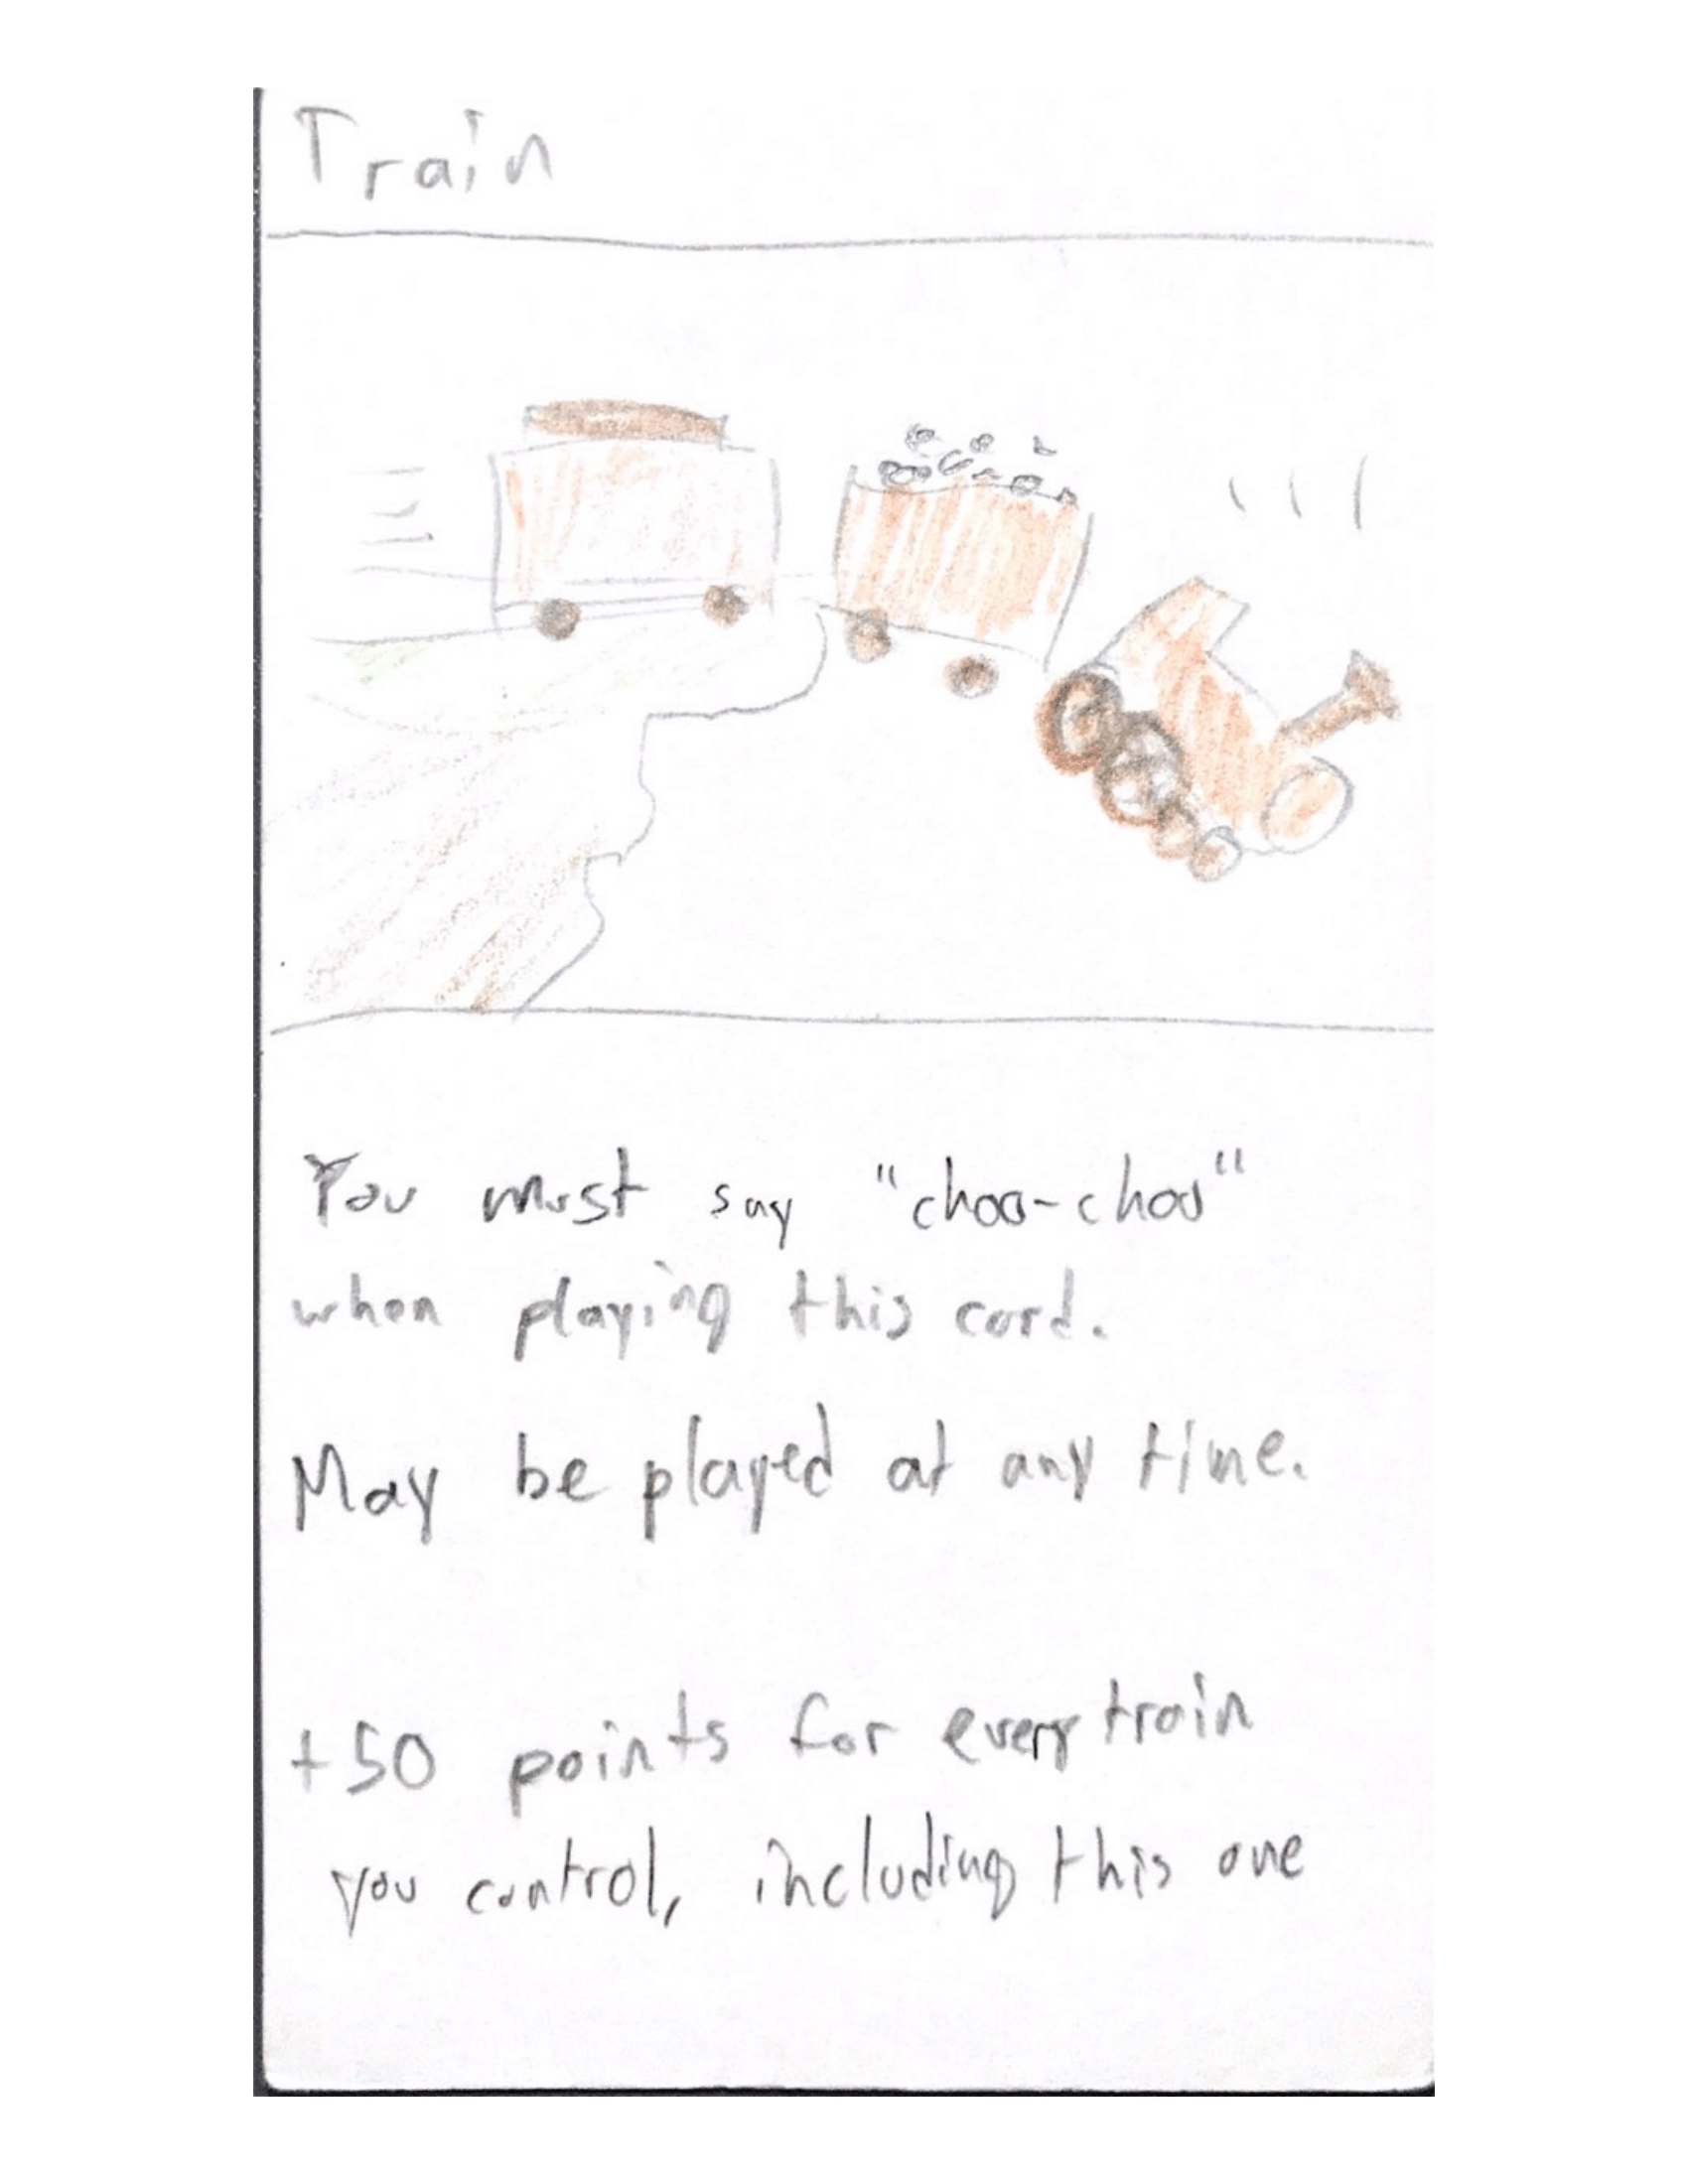 Train
You must say "choo-choo"
when playing this card.
May be played at any time.
+50 points for every train
you control, including this one